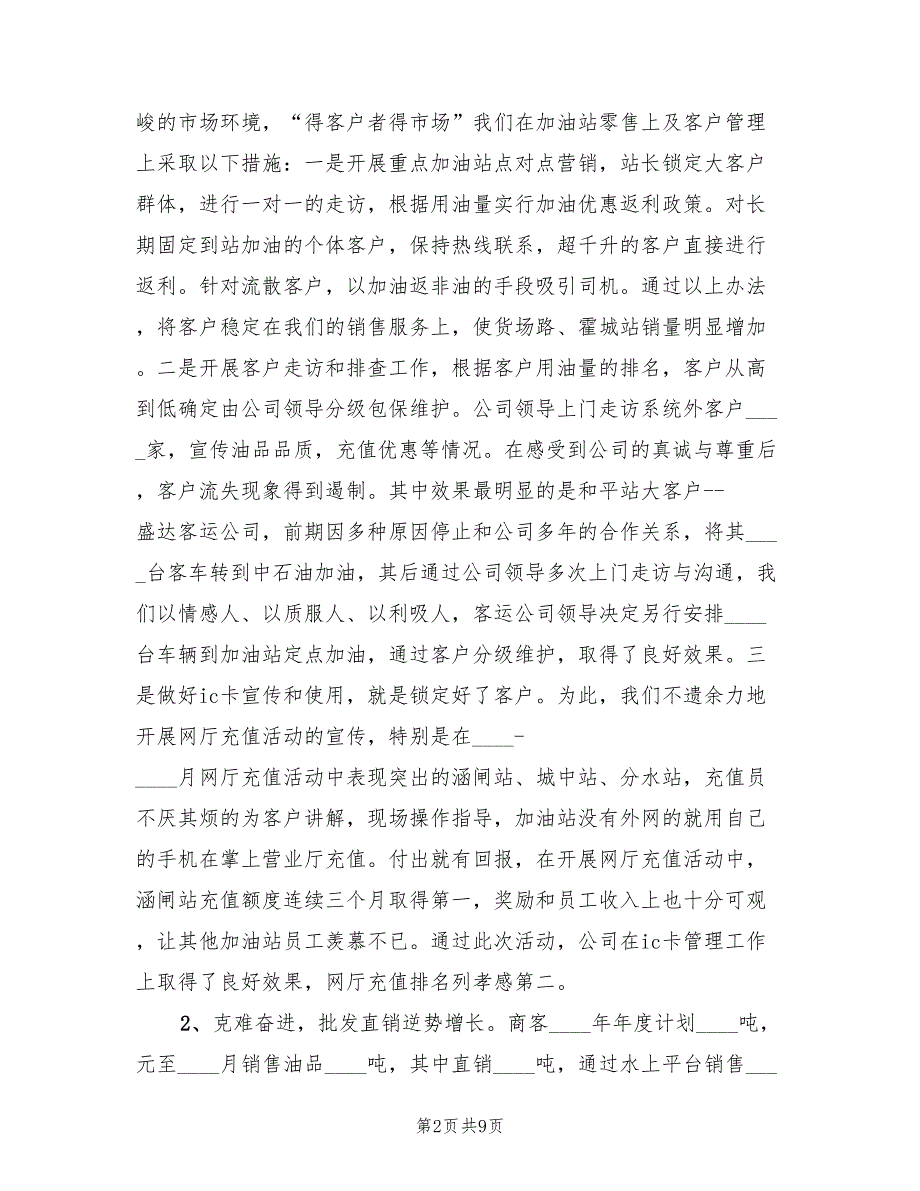 峻的市场环境，“得客户者得市场”我们在加油站零售上及客户管理
上采取以下措施：一是开展重点加油站点对点营销，站长锁定大客户
群体，进行一对一的走访，根据用油量实行加油优惠返利政策。对长
期固定到站加油的个体客户，保持热线联系，超千升的客户直接进行
返利。针对流散客户，以加油返非油的手段吸引司机。通过以上办法
，将客户稳定在我们的销售服务上，使货场路、霍城站销量明显增加
。二是开展客户走访和排查工作，根据客户用油量的排名，客户从高
到低确定由公司领导分级包保维护。公司领导上门走访系统外客户___
_家，宣传油品品质，充值优惠等情况。在感受到公司的真诚与尊重后
，客户流失现象得到遏制。其中效果最明显的是和平站大客户--
盛达客运公司，前期因多种原因停止和公司多年的合作关系，将其___
_台客车转到中石油加油，其后通过公司领导多次上门走访与沟通，我
们以情感人、以质服人、以利吸人，客运公司领导决定另行安排____
台车辆到加油站定点加油，通过客户分级维护，取得了良好效果。三
是做好ic卡宣传和使用，就是锁定好了客户。为此，我们不遗余力地
开展网厅充值活动的宣传，特别是在____-
____月网厅充值活动中表现突出的涵闸站、城中站、分水站，充值员
不厌其烦的为客户讲解，现场操作指导，加油站没有外网的就用自己
的手机在掌上营业厅充值。付出就有回报，在开展网厅充值活动中，
涵闸站充值额度连续三个月取得第一，奖励和员工收入上也十分可观
，让其他加油站员工羡慕不已。通过此次活动，公司在ic卡管理工作
上取得了良好效果，网厅充值排名列孝感第二。
2、克难奋进，批发直销逆势增长。商客____年年度计划____吨，
元至____月销售油品____吨，其中直销____吨，通过水上平台销售___
第2页 共9页